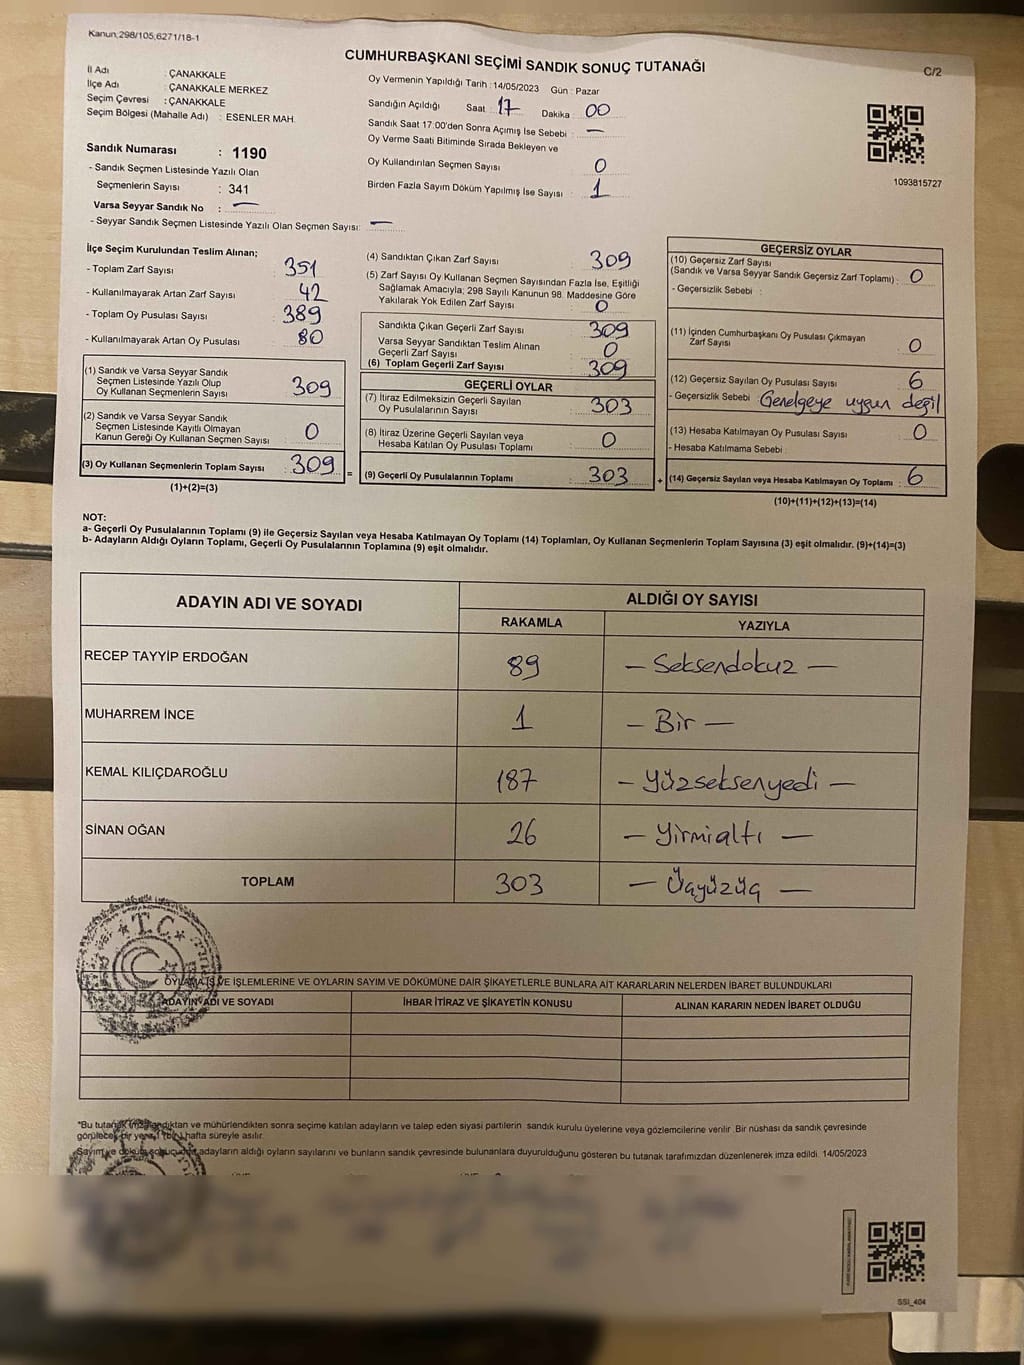 Kanun;298/105,6271/18-1
CUMHURBAŞKANI SEÇİMİ SANDIK SONUÇ TUTANAĞI
C/2
İl Adı : ÇANAKKALE
İlçe Adı : ÇANAKKALE MERKEZ
Seçim Çevresi : ÇANAKKALE
Seçim Bölgesi (Mahalle Adı) : ESENLER MAH.
Sandık Numarası : 1190
- Sandık Seçmen Listesinde Yazılı Olan
Seçmenlerin Sayısı : 341
Varsa Seyyar Sandık No : —
- Seyyar Sandık Seçmen Listesinde Yazılı Olan Seçmen Sayısı: —
Oy Vermenin Yapıldığı Tarih : 14/05/2023 Gün : Pazar
Sandığın Açıldığı Saat : 17 Dakika : 00
Sandık Saat 17:00'den Sonra Açımış İse Sebebi : —
Oy Verme Saati Bitiminde Sırada Bekleyen ve
Oy Kullandırılan Seçmen Sayısı : 0
Birden Fazla Sayım Döküm Yapılmış İse Sayısı : 1
1093815727
İlçe Seçim Kurulundan Teslim Alınan;
- Toplam Zarf Sayısı : 351
- Kullanılmayarak Artan Zarf Sayısı : 42
- Toplam Oy Pusulası Sayısı : 389
- Kullanılmayarak Artan Oy Pusulası : 80
(1) Sandık ve Varsa Seyyar Sandık
Seçmen Listesinde Yazılı Olup
Oy Kullanan Seçmenlerin Sayısı : 309
(2) Sandık ve Varsa Seyyar Sandık
Seçmen Listesinde Kayıtlı Olmayan
Kanun Gereği Oy Kullanan Seçmen Sayısı : 0
(3) Oy Kullanan Seçmenlerin Toplam Sayısı : 309
(1)+(2)=(3)
(4) Sandıktan Çıkan Zarf Sayısı : 309
(5) Zarf Sayısı Oy Kullanan Seçmen Sayısından Fazla İse, Eşitliği
Sağlamak Amacıyla; 298 Sayılı Kanunun 98. Maddesine Göre
Yakılarak Yok Edilen Zarf Sayısı : 0
Sandıkta Çıkan Geçerli Zarf Sayısı : 309
Varsa Seyyar Sandıktan Teslim Alınan
Geçerli Zarf Sayısı : 0
(6) Toplam Geçerli Zarf Sayısı : 309
=
GEÇERLİ OYLAR
(7) İtiraz Edilmeksizin Geçerli Sayılan
Oy Pusulalarının Sayısı : 303
(8) İtiraz Üzerine Geçerli Sayılan veya
Hesaba Katılan Oy Pusulası Toplamı : 0
(9) Geçerli Oy Pusulalarının Toplamı : 303
+
GEÇERSİZ OYLAR
(10) Geçersiz Zarf Sayısı
(Sandık ve Varsa Seyyar Sandık Geçersiz Zarf Toplamı) : 0
- Geçersizlik Sebebi :
(11) İçinden Cumhurbaşkanı Oy Pusulası Çıkmayan
Zarf Sayısı : 0
(12) Geçersiz Sayılan Oy Pusulası Sayısı : 6
- Geçersizlik Sebebi : Genelgeye uygun değil
(13) Hesaba Katılmayan Oy Pusulası Sayısı : 0
- Hesaba Katılmama Sebebi :
(14) Geçersiz Sayılan veya Hesaba Katılmayan Oy Toplamı : 6
(10)+(11)+(12)+(13)=(14)
NOT:
a- Geçerli Oy Pusulalarının Toplamı (9) ile Geçersiz Sayılan veya Hesaba Katılmayan Oy Toplamı (14) Toplamları, Oy Kullanan Seçmenlerin Toplam Sayısına (3) eşit olmalıdır. (9)+(14)=(3)
b- Adayların Aldığı Oyların Toplamı, Geçerli Oy Pusulalarının Toplamına (9) eşit olmalıdır.
ADAYIN ADI VE SOYADI
ALDIĞI OY SAYISI
RAKAMLA YAZIYLA
RECEP TAYYİP ERDOĞAN 89 — Seksendokuz —
MUHARREM İNCE 1 — Bir —
KEMAL KILIÇDAROĞLU 187 — Yüzseksenyedi —
SİNAN OĞAN 26 — Yirmialtı —
TOPLAM 303 — Üçyüzüç —
T.C.
OYLAMA İŞ VE İŞLEMLERİNE VE OYLARIN SAYIM VE DÖKÜMÜNE DAİR ŞİKAYETLERLE BUNLARA AİT KARARLARIN NELERDEN İBARET BULUNDUKLARI
ADAYIN ADI VE SOYADI İHBAR İTİRAZ VE ŞİKAYETİN KONUSU ALINAN KARARIN NEDEN İBARET OLDUĞU
"Bu tutanak imzalandıktan ve mühürlendikten sonra seçime katılan adayların ve talep eden siyasi partilerin sandık kurulu üyelerine veya gözlemcilerine verilir. Bir nüshası da sandık çevresinde
görülecek bir yere 1 (bir) hafta süreyle asılır.
Sayım ve döküm sonucunda adayların aldığı oyların sayılarını ve bunların sandık çevresinde bulunanlara duyurulduğunu gösteren bu tutanak tarafımızdan düzenlenerek imza edildi. 14/05/2023
SSİ_404